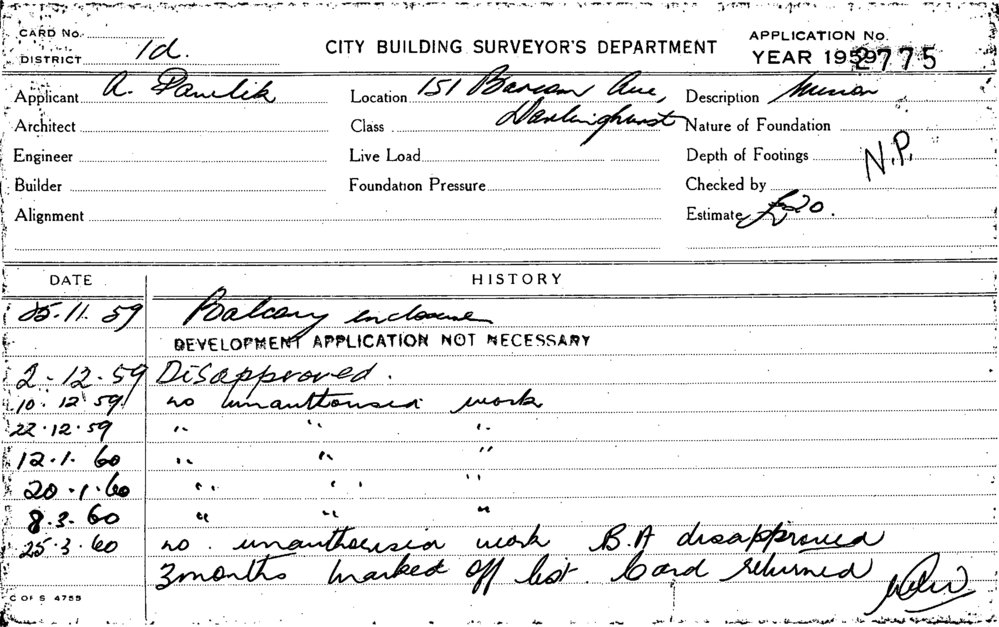 CARD No.
DISTRICT 1d.
CITY BUILDING SURVEYOR'S DEPARTMENT
APPLICATION No.
YEAR 1959 2775
Applicant A. Pawlik
Location 151 Barcom Ave,
Darlinghurst
Description Minor
Architect
Class
Nature of Foundation
Engineer
Live Load
Depth of Footings N.P.
Builder
Foundation Pressure
Checked by
Alignment
Estimate £20.
DATE HISTORY
25.11.59 Balcony enclosure
DEVELOPMENT APPLICATION NOT NECESSARY
2-12-59 Disapproved.
10.12.59 no unauthorised work
22.12.59 " " "
12.1.60 " " "
20.1.60 " " "
8.3.60 " " "
25.3.60 no. unauthorised work B.A disapproved
3 months marked off list. Card returned
C OF S 4755